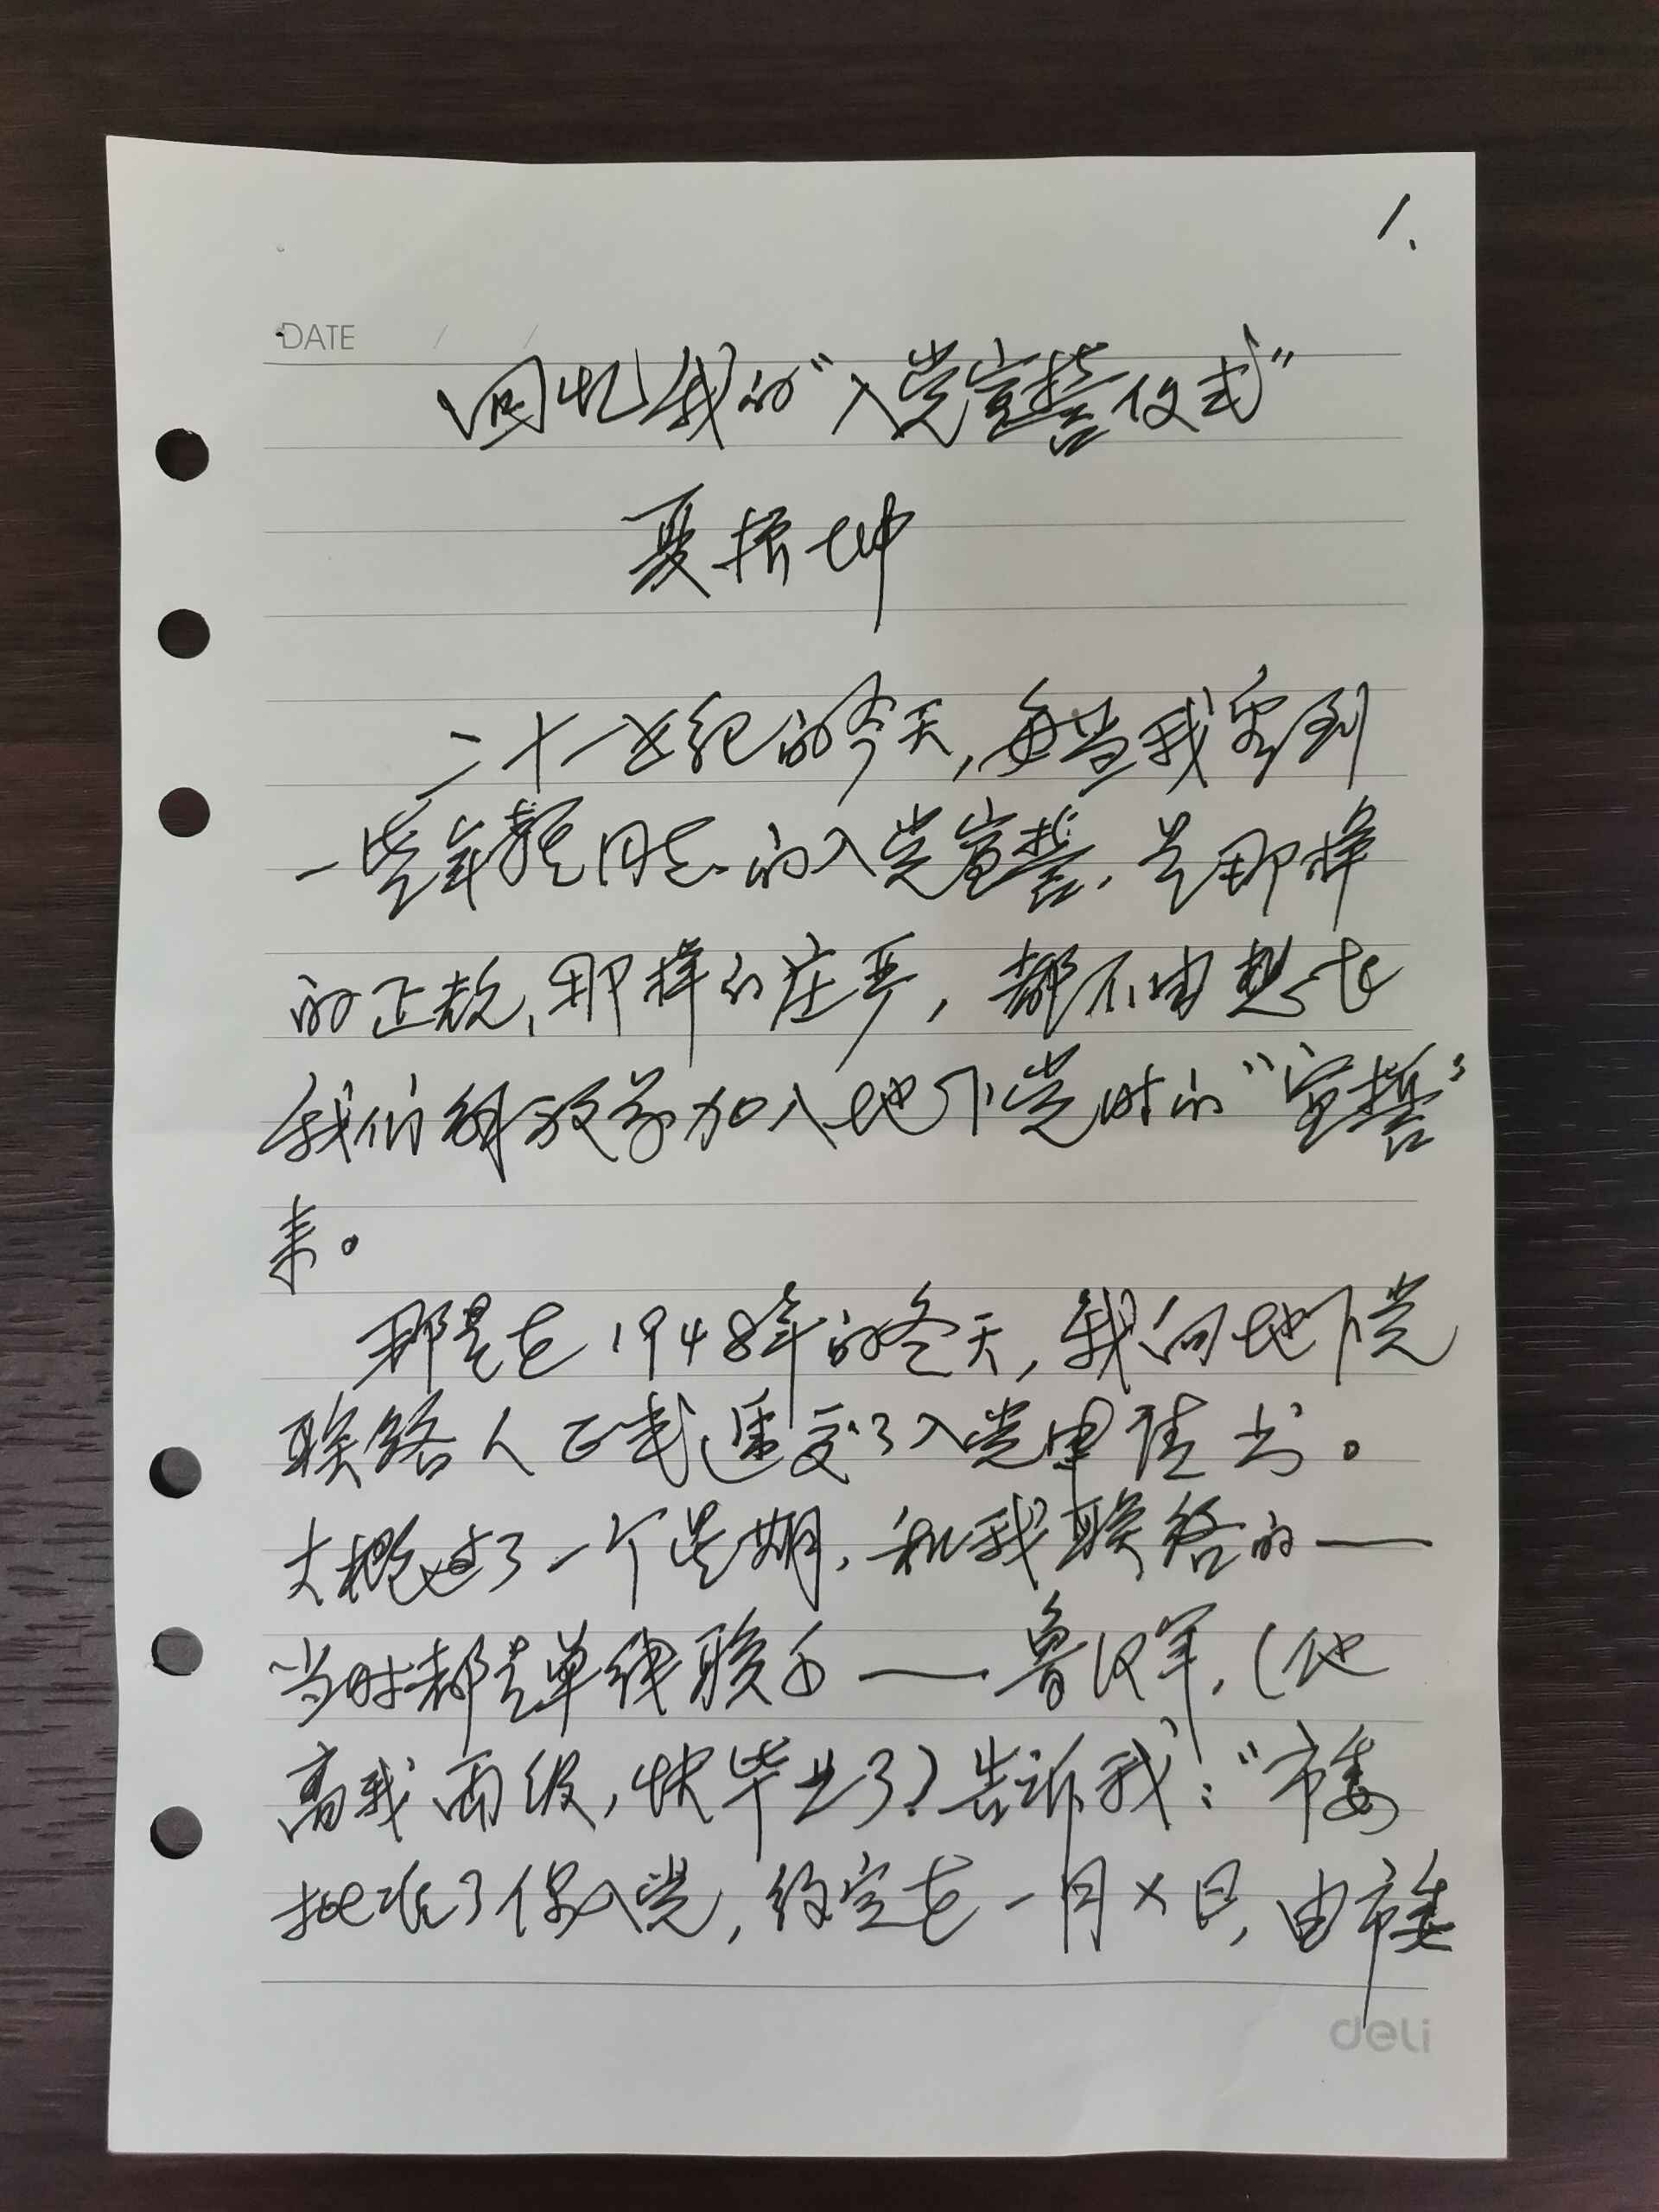 1.
DATE / /
回忆我的“入党宣誓仪式”
夏振坤
二十一世纪的今天，每当我看到
一些年轻同志的入党宣誓，是那样
的正规、那样的庄严，都不由想起
我们解放前加入地下党时的“宣誓”
来。
那是在1948年的冬天，我向地下党
联络人正式递交了入党申请书。
大概过了一个星期，和我联络的——
当时都是单线联系——鲁汉军，（他
高我两级，快毕业了）告诉我：“市委
批准了你入党，约定在一月×日，由市委
deli